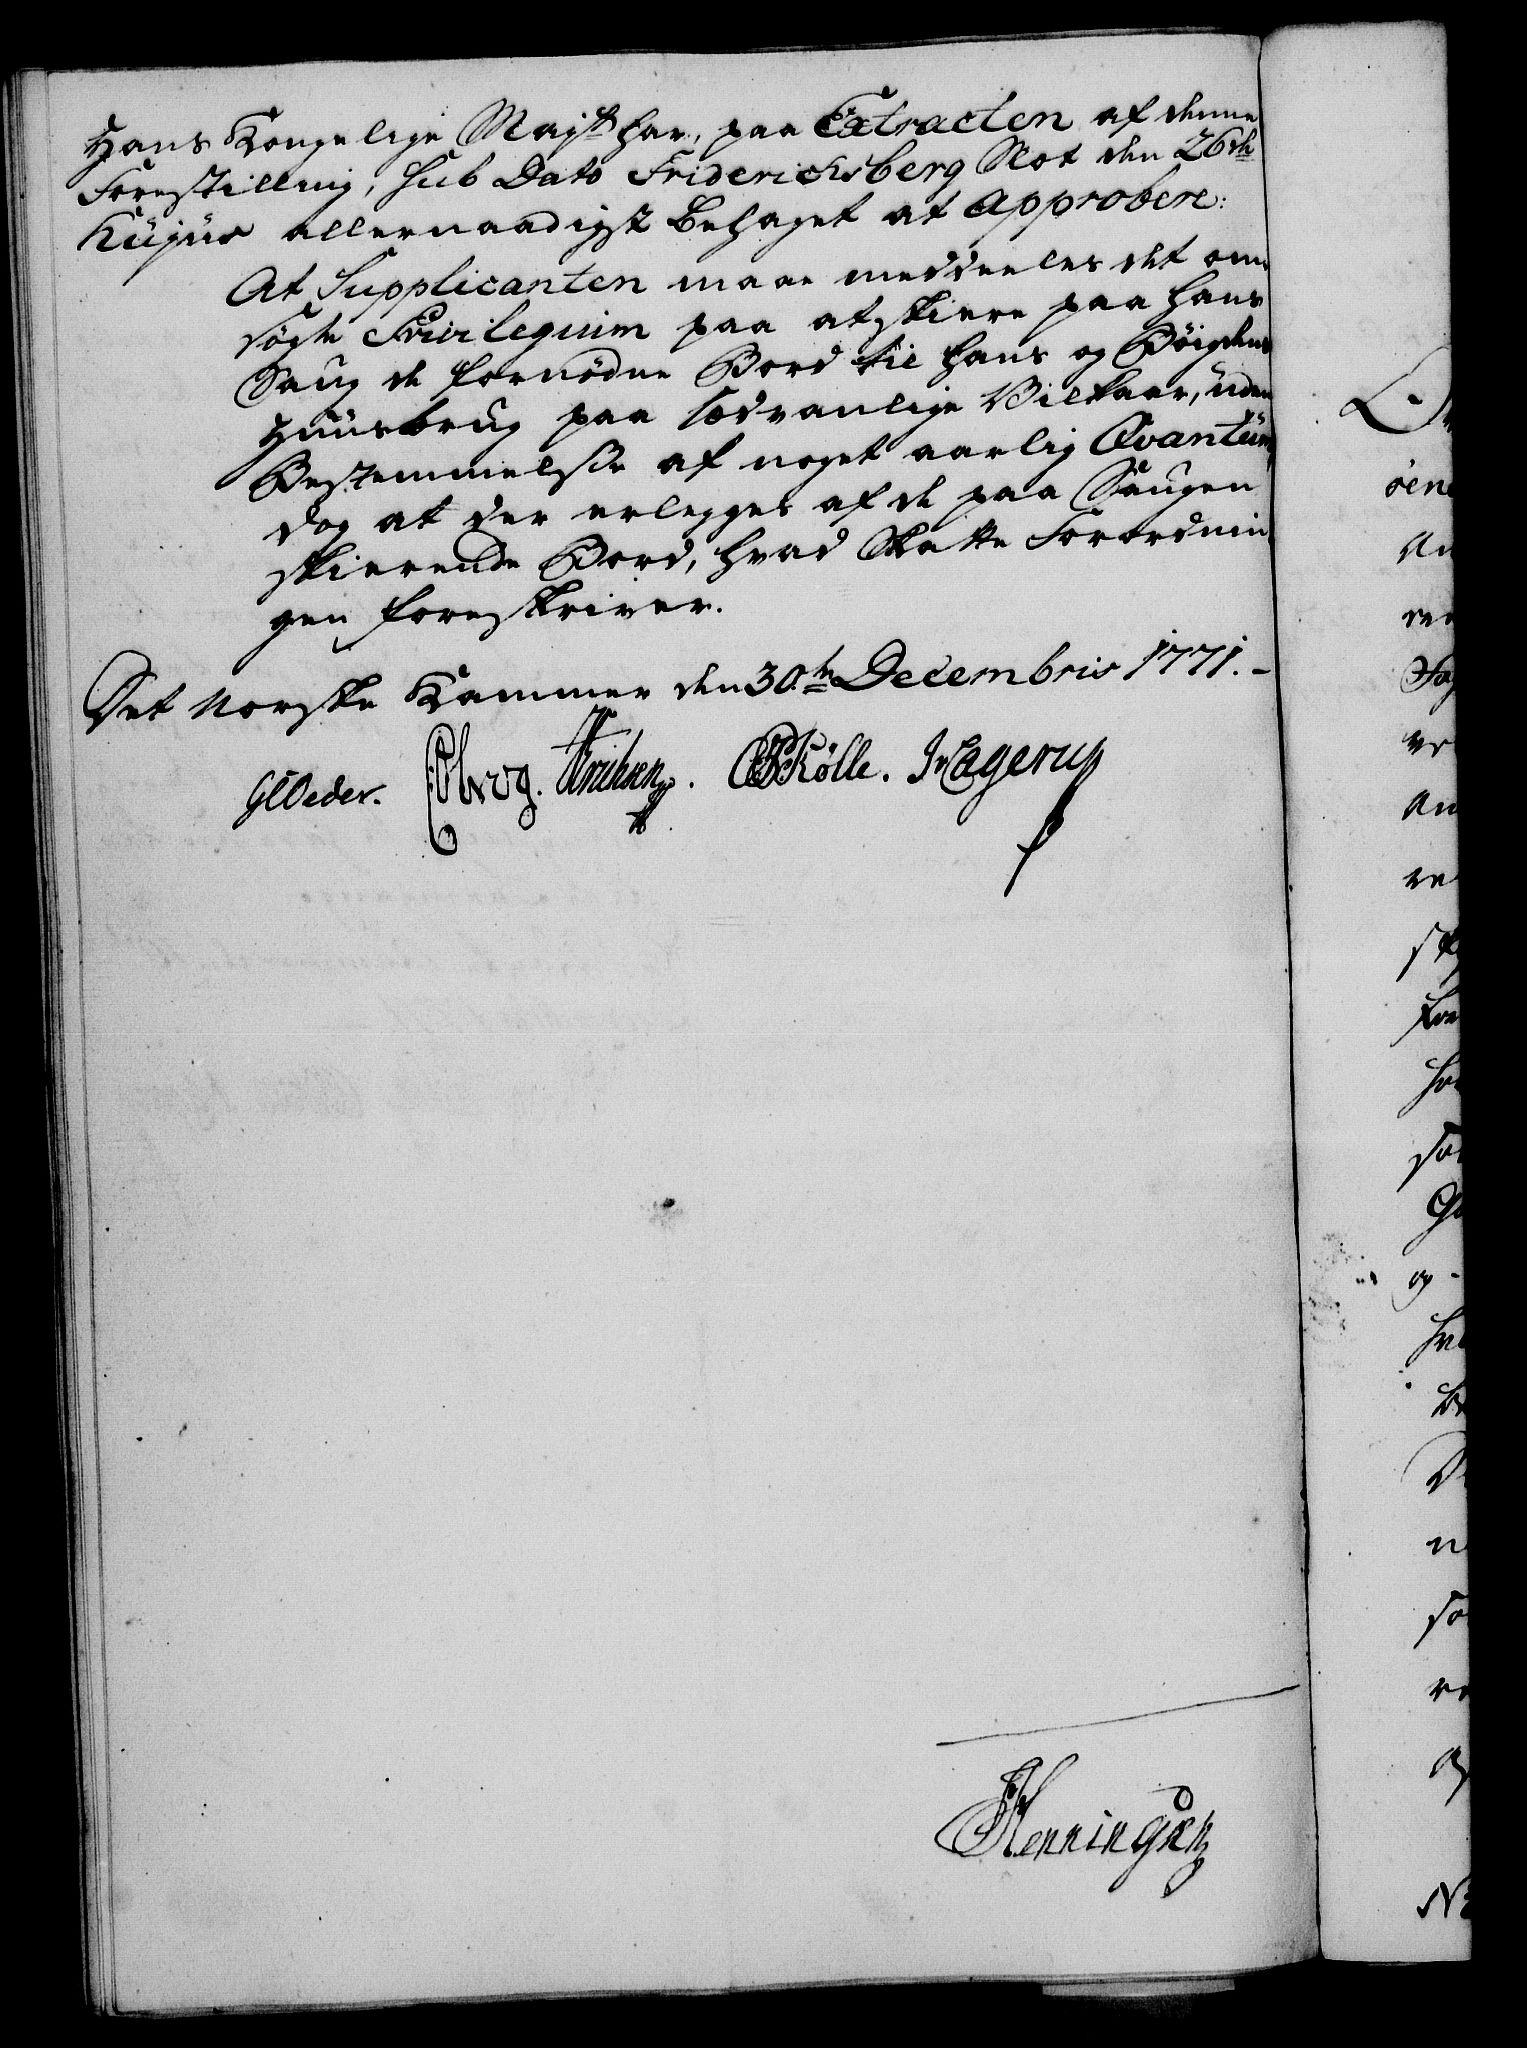 Hans Kongelige Majst: har, paa Extracten af denne
Forestilling, sub Dato Friderichsberg Slot den 26de
hujus allernaadigst behaget at approbere:
At Supplicanten maae meddeeles det om
søgte Privilegium paa at skiere paa hans
Saug de fornødne Bord til hans og Bøigdens
Huusbrug paa sædvanlige Vilkaar, uden
Bestemmelse af noget aarlig Qvantum,
dog at der erlegges af de paa Saugen
skierende Bord, hvad Skatte Forordnin
gen foreskriver.
Det Norske Kammer den 30te Decembris 1771.
GCOeder.
Skølle.
Lagerup
Henningsen